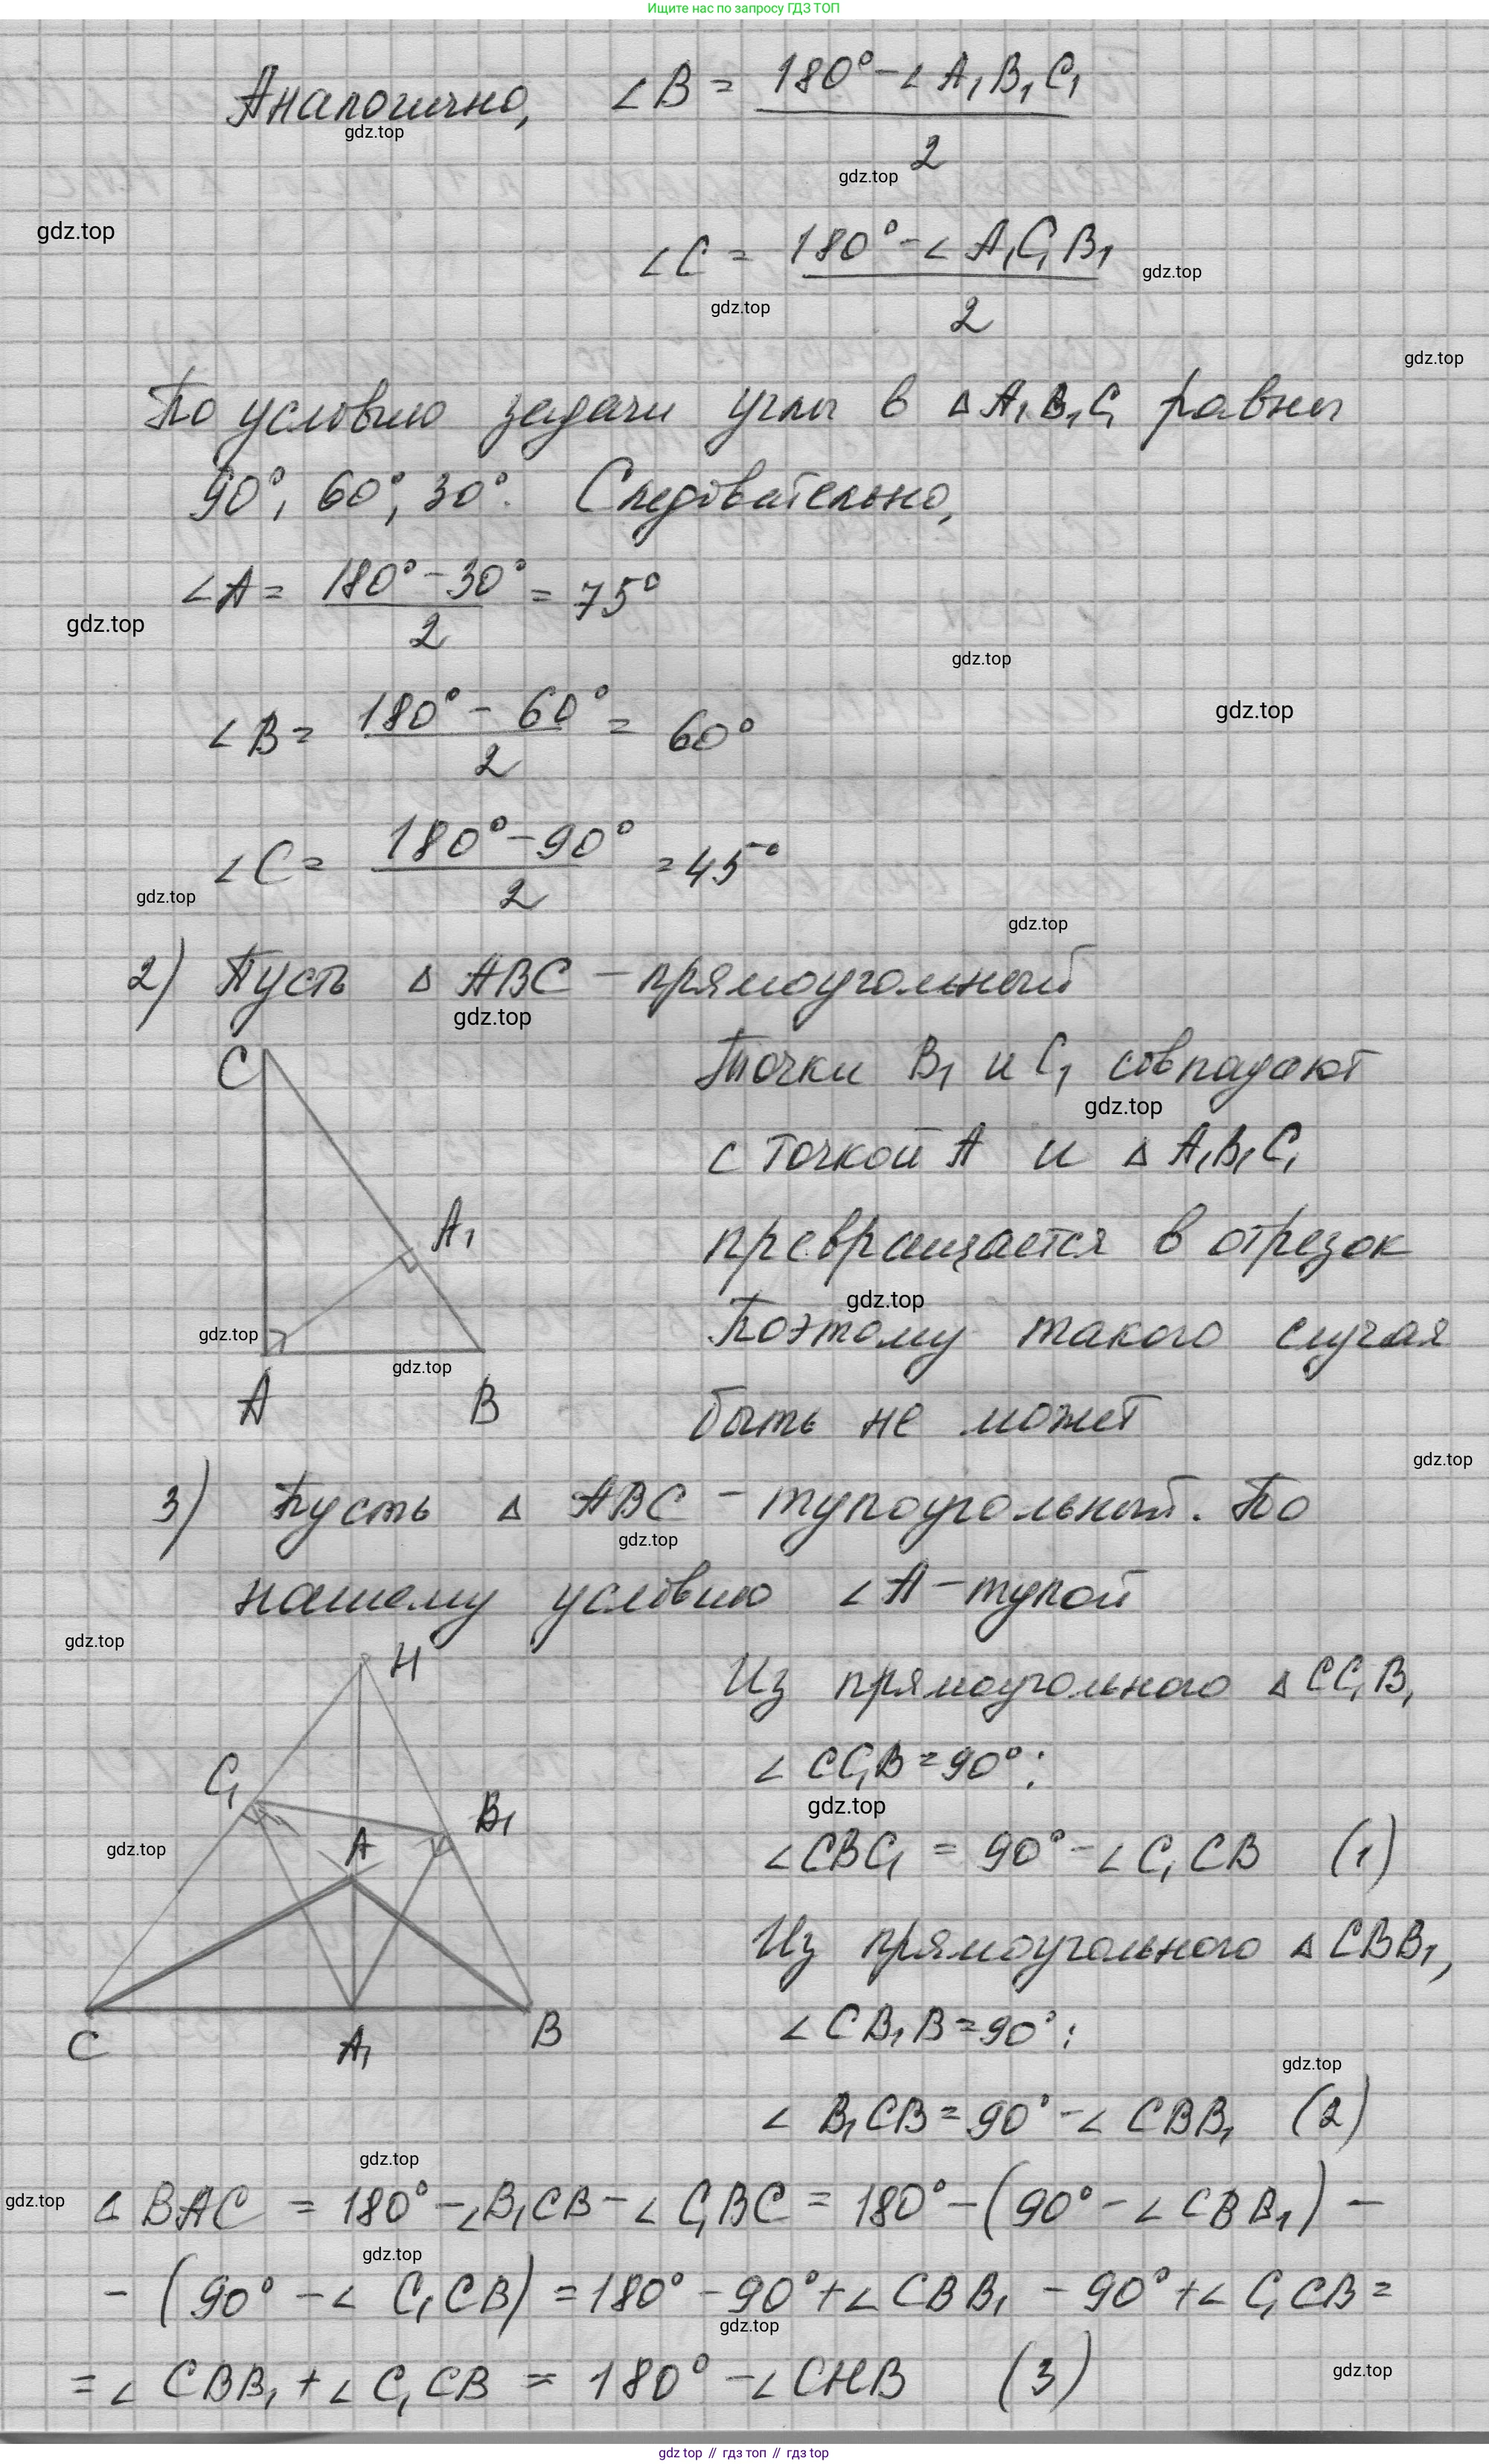 Ищите нас по запросу ГДЗ ТОП
Аналогично, ∠B = (180° - ∠A₁B₁C₁) / 2
gdz.top
gdz.top
gdz.top
∠C = (180° - ∠A₁C₁B₁) / 2
gdz.top
gdz.top
gdz.top
По условию задачи углы в △A₁B₁C₁ равны
90°, 60°, 30°. Следовательно,
∠A = (180° - 30°) / 2 = 75°
gdz.top
gdz.top
∠B = (180° - 60°) / 2 = 60°
gdz.top
∠C = (180° - 90°) / 2 = 45°
gdz.top
gdz.top
2) Пусть △ABC - прямоугольный
gdz.top
C
Точки B₁ и C₁ совпадают
gdz.top
с точкой A и △A₁B₁C₁
A₁
превращается в отрезок
gdz.top
Поэтому такого случая
gdz.top
gdz.top
A B
быть не может
gdz.top
3) Пусть △ABC - тупоугольный. По
gdz.top
нашему условию ∠A - тупой
gdz.top
H
Из прямоугольного △CC₁B,
C₁
∠CC₁B = 90°:
gdz.top
B₁
A
gdz.top
∠CBC₁ = 90° - ∠C₁CB (1)
Из прямоугольного △CBB₁,
C A₁ B
∠CB₁B = 90°:
gdz.top
∠B₁CB = 90° - ∠CBB₁ (2)
gdz.top
gdz.top
△BAC = 180° - ∠B₁CB - ∠C₁BC = 180° - (90° - ∠CBB₁) -
gdz.top
- (90° - ∠C₁CB) = 180° - 90° + ∠CBB₁ - 90° + ∠C₁CB =
gdz.top
= ∠CBB₁ + ∠C₁CB = 180° - ∠CHB (3)
gdz.top
gdz top // гдз топ // гдз top